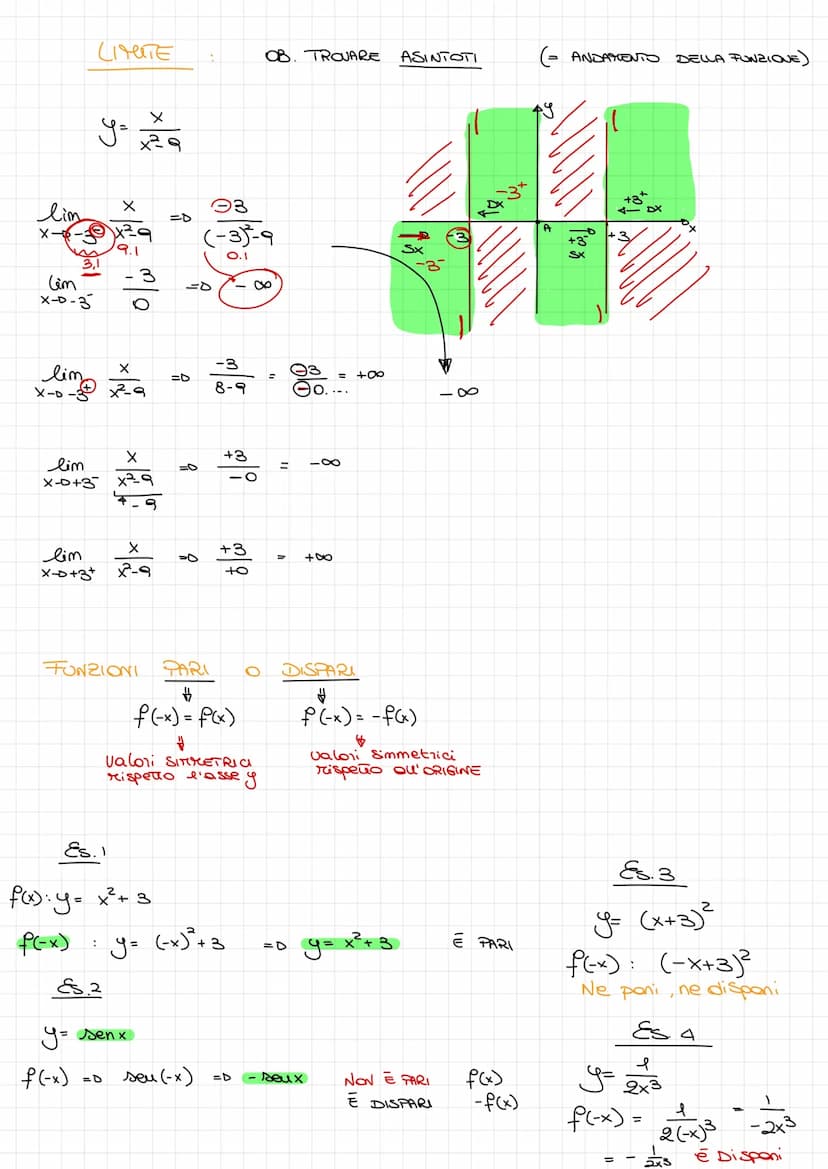 LIMITE : OB. TROVARE ASINTOTI (= ANDAMENTO DELLA FUNZIONE)
y = x / x²-9
lim x→-3⁻ x / x²-9 => -3 / (-3)²-9
3,1 9.1 0.1
lim x→-3⁻ -3 / 0 => -∞
lim x→-3⁺ x / x²-9 => -3 / 8-9 = -3 / -0.... = +∞
lim x→+3⁻ x / x²-9 => +3 / -0 = -∞
lim x→+3⁺ x / x²-9 => +3 / +0 = +∞
y
-3⁺ DX
+3⁺ DX
x
SX -3 -3⁻
A
+3⁻ SX +3
-∞
FUNZIONI PARI O DISPARI
f(-x) = f(x) f(-x) = -f(x)
valori SIMMETRICI valori simmetrici
rispetto l'asse y rispetto all'ORIGINE
Es.1
f(x): y = x²+3
f(-x) : y = (-x)²+3 => y = x²+3 È PARI
Es.2
y = sen x
f(-x) => sen(-x) => -senx NON È PARI f(x)
È DISPARI -f(x)
Es.3
y = (x+3)²
f(-x) : (-x+3)²
Ne pari, ne dispari
Es. 4
y = 1 / 2x³
f(-x) = 1 / 2(-x)³ = 1 / -2x³
= - 1 / 2x³ È Dispari